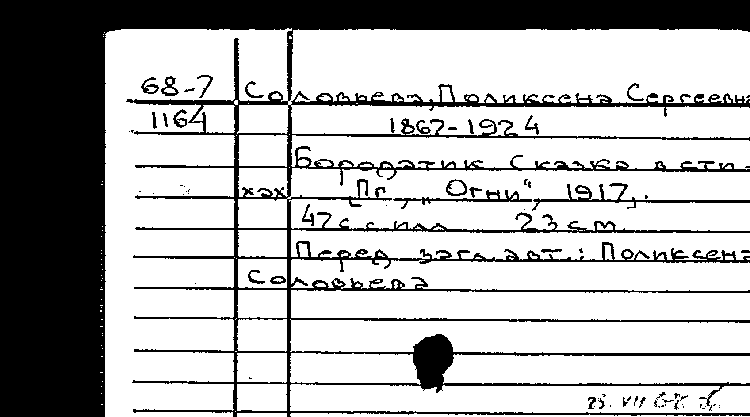 68-7 Соловьева, Поликсена Сергеевна
1164 1867-1924
Бородатик Сказка в сти-
хах. [Пг., „Огни“, 1917].
47 с с илл 23 см.
Перед загл. авт.: Поликсена
Соловьева